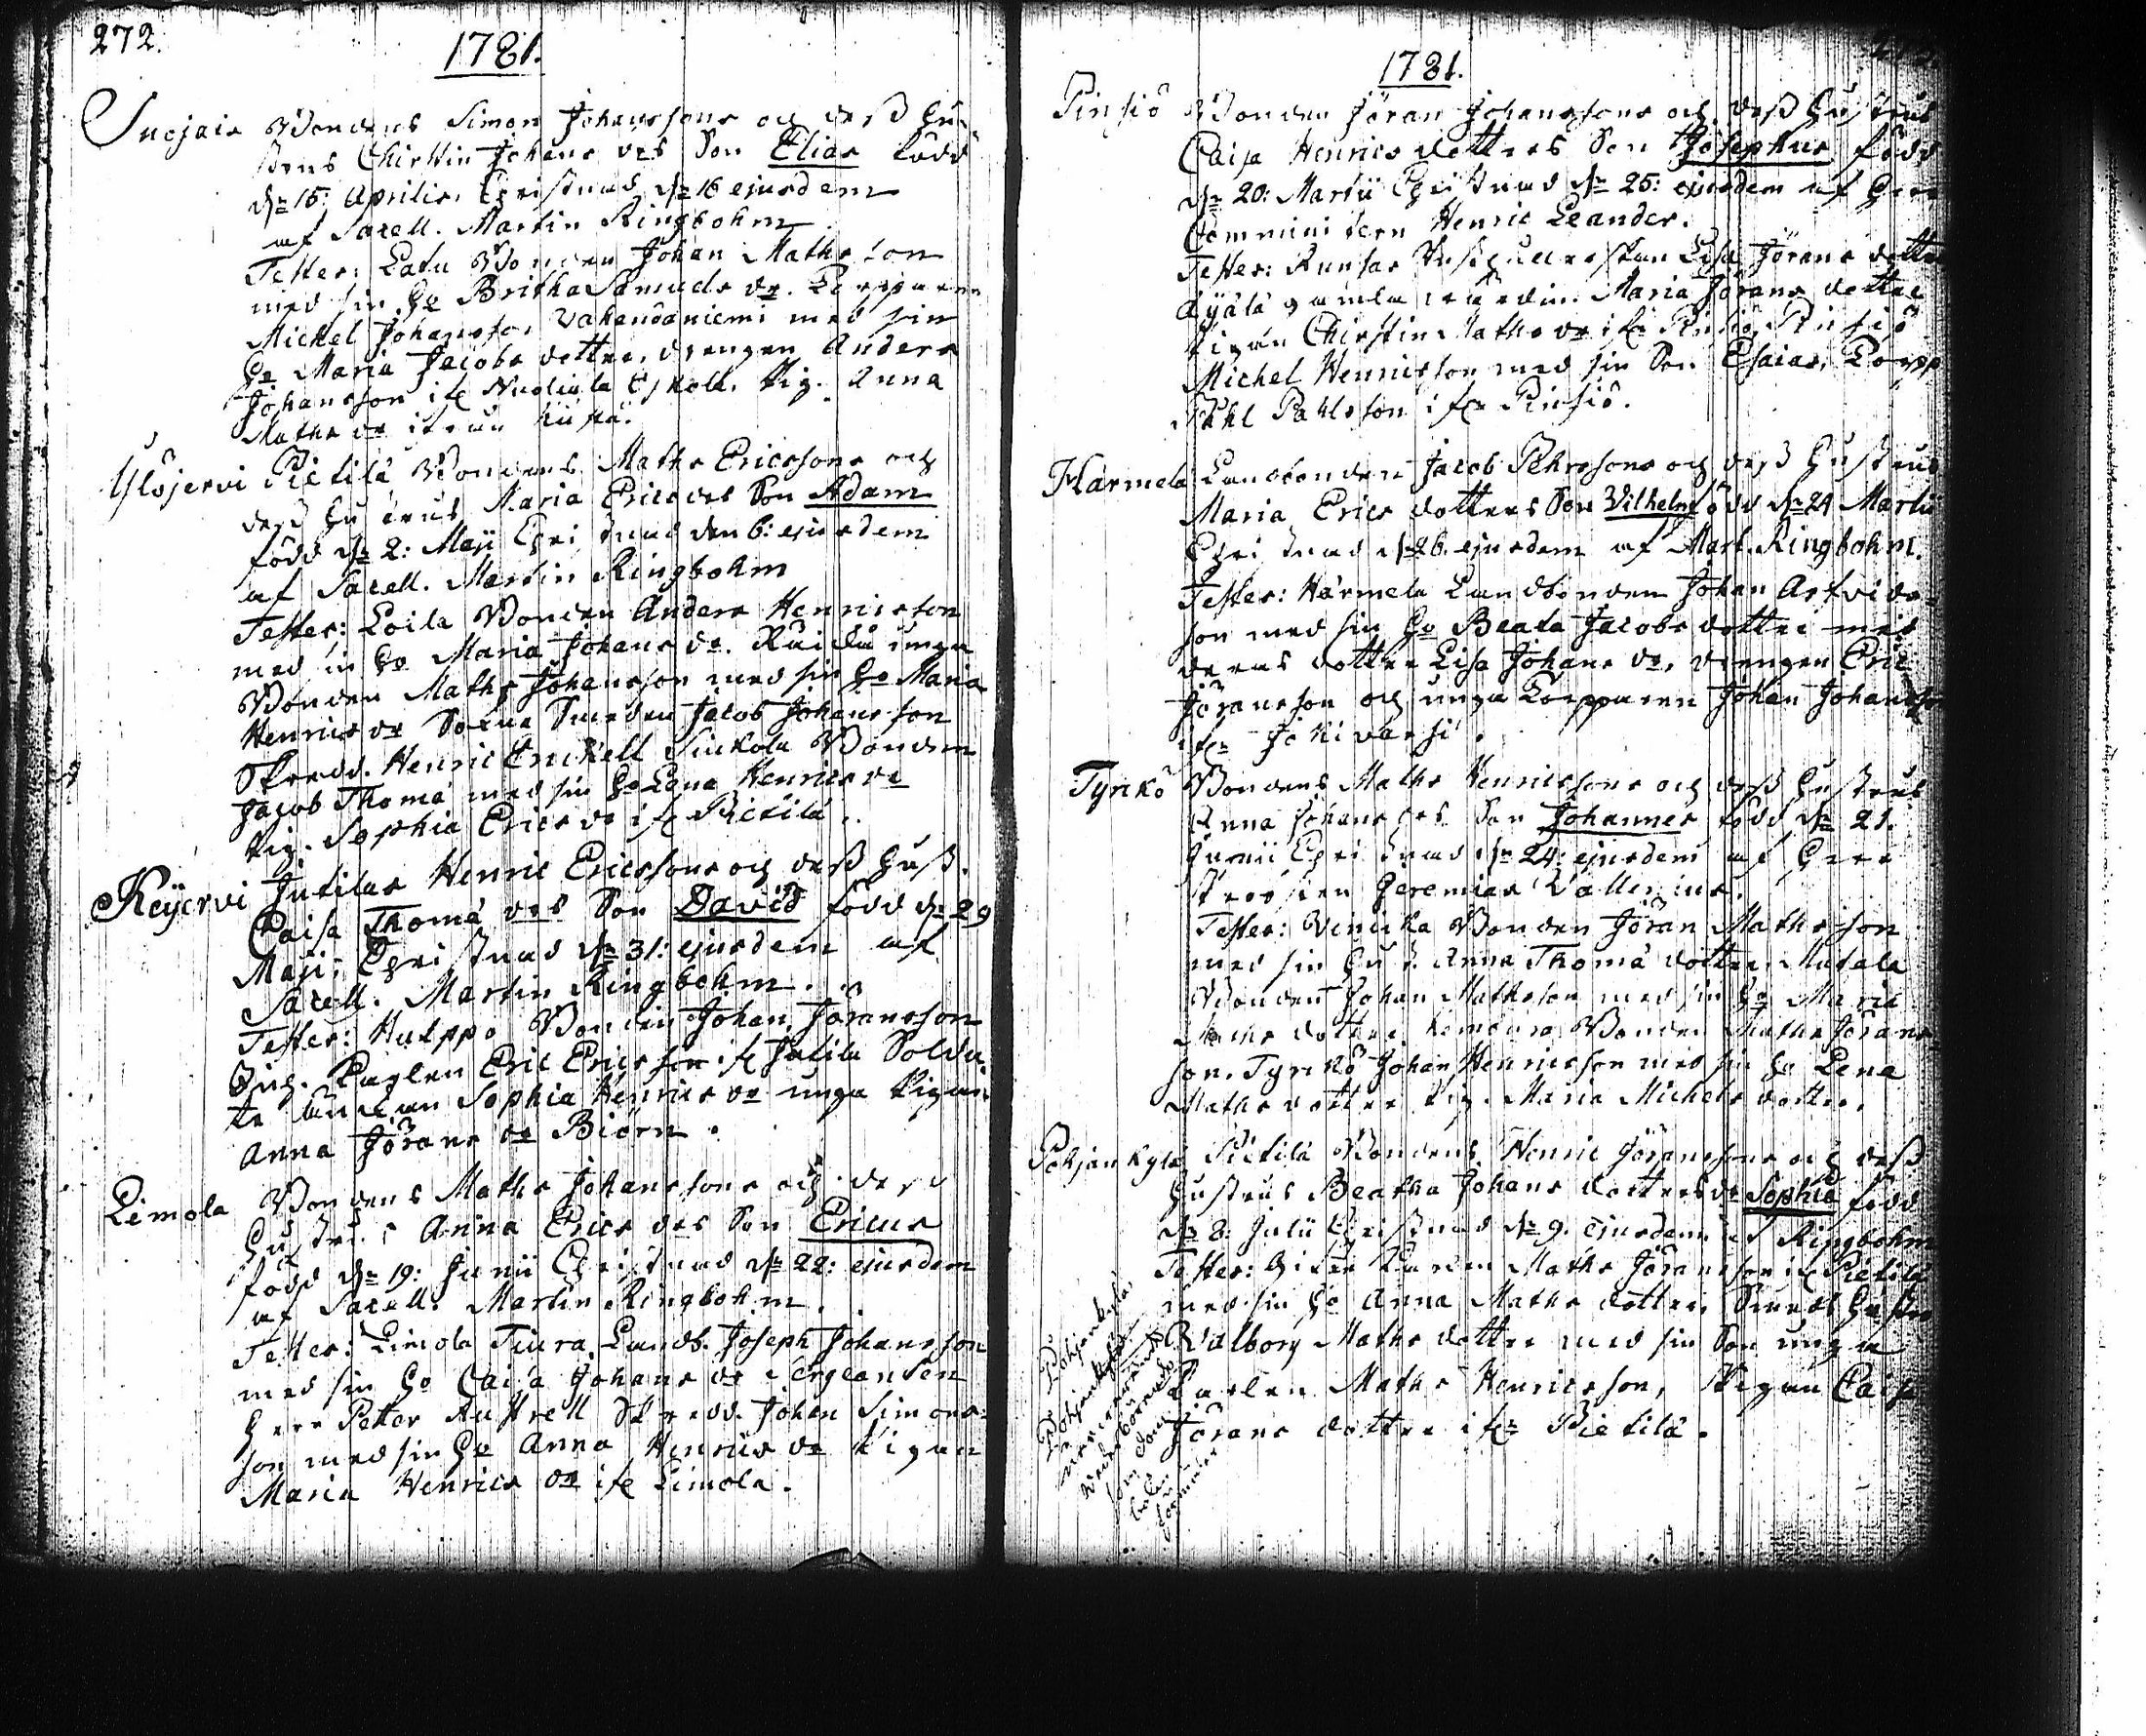 272.
1781.
Sucjais Bondens Simon Johanssons och dess hu-
strus Chirstin Johans drs Son Elias född
dn 15: Aprilis, Christnad dn 16 ejusdem
af Sacell. Martin Ringbohm
Testes: Latu Bonden Johan Mathsson
med sin ho Britha Samuels dr. Torpparen
Michel Johansson Vahandäniemi med sin
ho Maria Jacobs dotter, drengen Anders
Johansson ifr Nuoliala Eskell. Pig. Anna
Maths dr
Ylöjervi Pietilä Bondens Maths Ericssons och
dess hustrus Maria Erics drs Son Adam
född dn 2: Maji Christnad den 6: ejusdem
af Sacell. Martin Ringbohm
Testes: Loila Bonden Anders Henricsson
med sin ho Maria Johans dr. unga
Bonden Maths Johansson med sin ho Maria
Henrics dr Smeden Jacob Johansson
Skredd. Henric Enckell Siukola Bonden
Jacob Thomä med sin ho Lena Henrics dr
Pig. Sophia Erics dr ifr Pietilä.
Keijervi Jutilas Henric Ericssons och dess hust.
Caisa Thomä drs Son David född dn 29
Maji, Christnad dn 31: ejusdem af
Sacell. Martin Ringbohm.
Testes: Huppo Bonden Johan Jöransson
Karlen Eric Ericsson ifr Jutila Solda-
te Sophia Henrics dr unga Pigan
Anna Jörans dr Biörn.
Limola Bondens Maths Johanssons och dess
hustrus Anna Erics drs Son Ericus
född dn 19: Junii Christnad dn 22: ejusdem
af Sacell. Martin Ringbohm.
Testes: Limola Tiura Landb. Joseph Johansson
med sin ho Caisa Johans dr Sergeanten
herr Petter Skredd. Johan Simons-
son med sin ho Anna Henrics dr Pigan
Maria Henrics dr ifr Limola.
1781.
Pinsiö Bonden Jöran Johanssons och dess hustrus
Caisa Henrics dotters Son Josephus född
dn 20: Martii Christnad dn 25: ejusdem af herr
Comministern Henric Leander.
Testes: Lisa Jörans dotter
gamla Maria Jörans dotter
Pigan Chirstin Maths dr ifr Pinsiö, Pinsiö
Michel Henricsson med sin Son Esaias, Torpp
Påhl Påhlsson ifr Pinsiö.
Härmelä Landbonden Jacob Pehrssons och dess hustrus
Maria Erics dotters Son Vilhelm född dn 24 Martii
Christnad dn 26. ejusdem af Mart. Ringbohm.
Testes: Härmelä Landbonden Johan Arfvids-
son med sin ho Beata Jacobs dotter med
deras dotter Lisa Johans dr, drengen Eric
Jöransson och unga Torpparen Johan Johansson
ifr Jokivarsi.
Tyrkö Bondens Maths Henricssons och dess hustrus
Anna Johans drs Son Johannes född dn 21.
Junii Christnad dn 24: ejusdem af herr
Prosten Jeremias Vallenius.
Testes: Bonden Jöran Mathsson
med sin hu Anna Thomä dotter, Mutala
Bonden Johan Mathsson med sin ho Maria
dotter Bonden Maths Jörans-
son, Tyrkö Johan Henricsson med sin ho Lena
Maths dotter Pig. Maria Michels dotter.
Pohjankylä Pietilä Bondens Henric Jöranssons och dess
hustrus Beatha Johans dotters dr Sophia född
dn 8: Julii Christnad dn 9. ejusdem af Ringbohm
Testes: Maths Jöransson ifr Pietilä
med sin ho Anna Maths dotter, Smeds hustru
Valborg Maths dotter med sin Son unga
Karlen Maths Henricsson, Pigan Caisa
Jörans dotter ifr Pietilä.
Pohjankylä
Pohjankylä